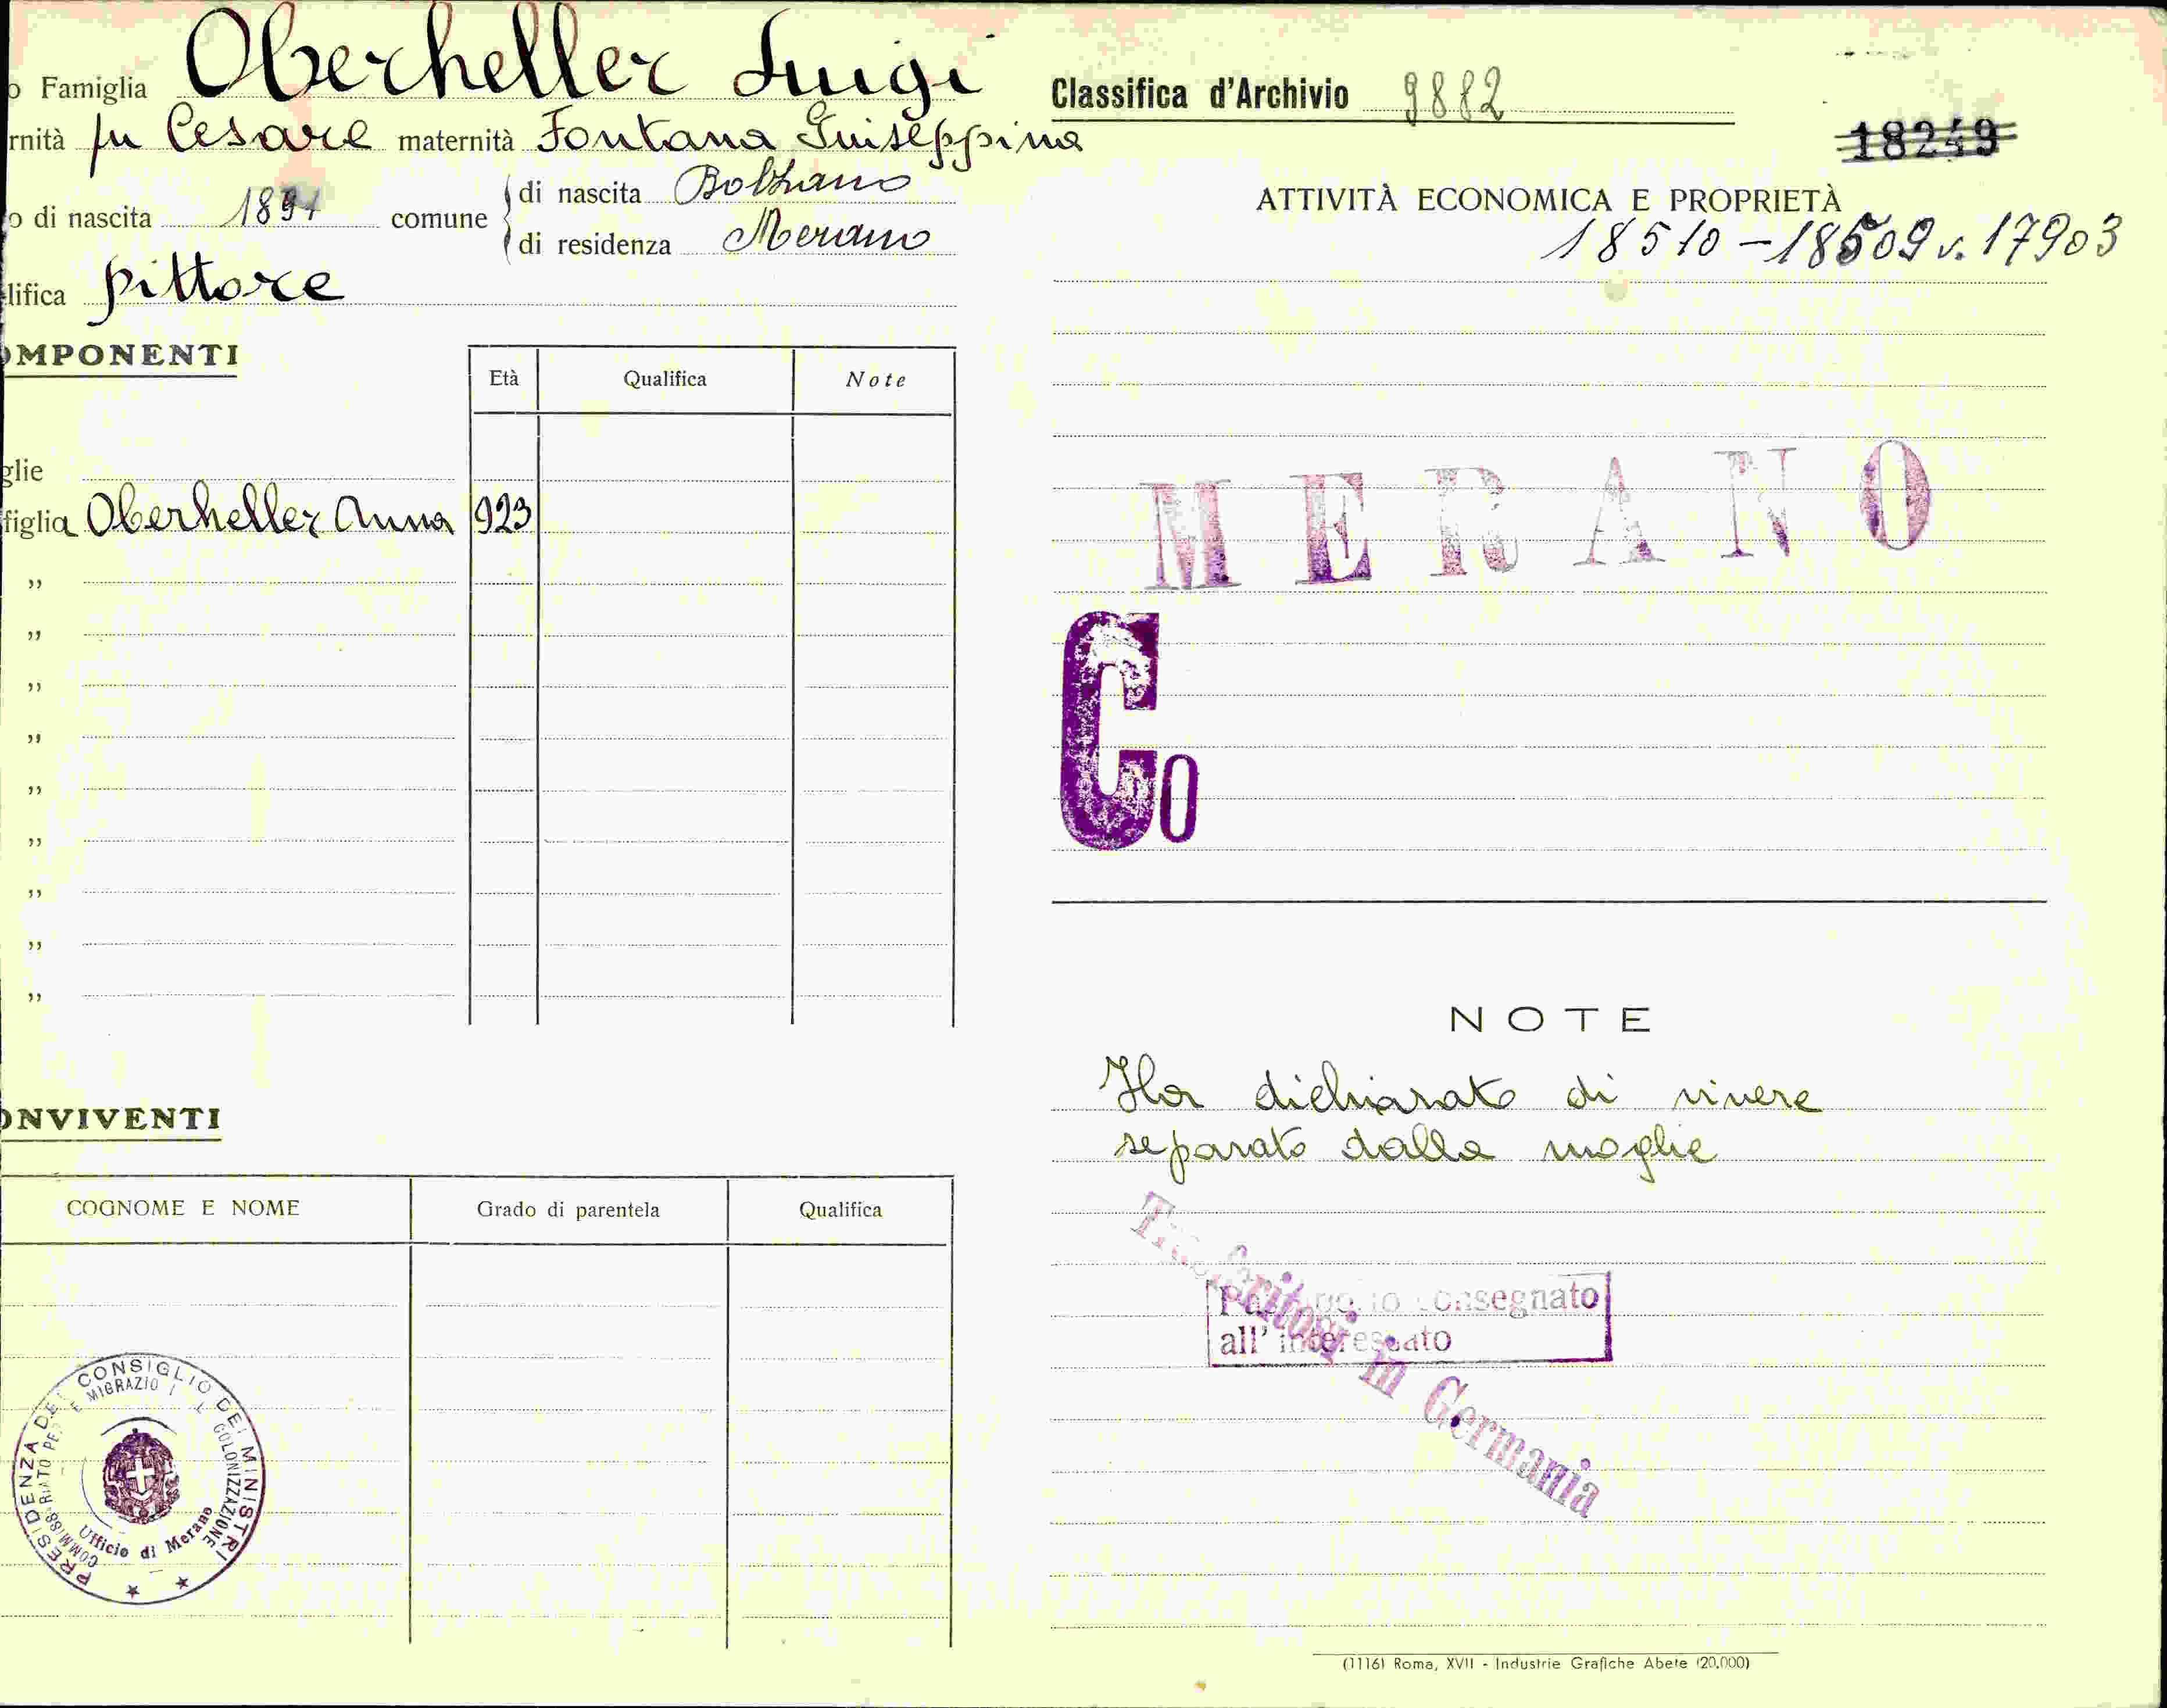 o Famiglia Oberheller Luigi
rnità fu Cesare maternità Fontana Guiseppina
o di nascita comune di nascita Bolzano
di residenza Merano
lifica pittore
OMPONENTI
Età Qualifica Note
glie
figlia Oberheller Anna 923
„
„
„
„
„
„
„
„
„
ONVIVENTI
COGNOME E NOME Grado di parentela Qualifica
PRESIDENZA DEL CONSIGLIO DEI MINISTRI
COMMISSARIATO PER LE MIGRAZIONI E COLONIZZAZIONE
Ufficio di Merano
Classifica d'Archivio 9882
18249
ATTIVITÀ ECONOMICA E PROPRIETÀ
18510 - 18509 v. 17903
MERANO
Co
NOTE
Ha dichiarato di vivere
separato dalla moglie
Trasferitosi in Germania
consegnato
all'interessato
(1116) Roma, XVII - Industrie Grafiche Abete (20.000)